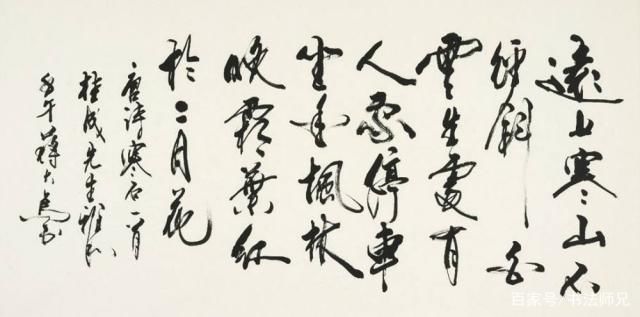 遠上寒山石
徑斜白
雲生處有
人家停車
坐愛楓林
晚霜葉紅
於二月花
唐詩寒石一首
桂成先生雅
壬午蔣大為書
百家号/书法师兄